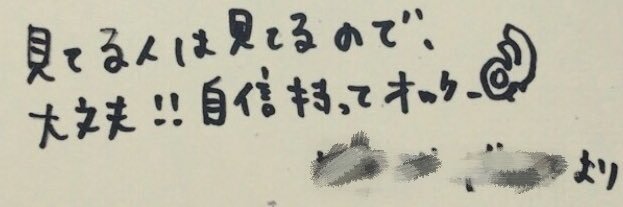 見てる人は見てるので、
大丈夫!!自信持ってオッケー
より